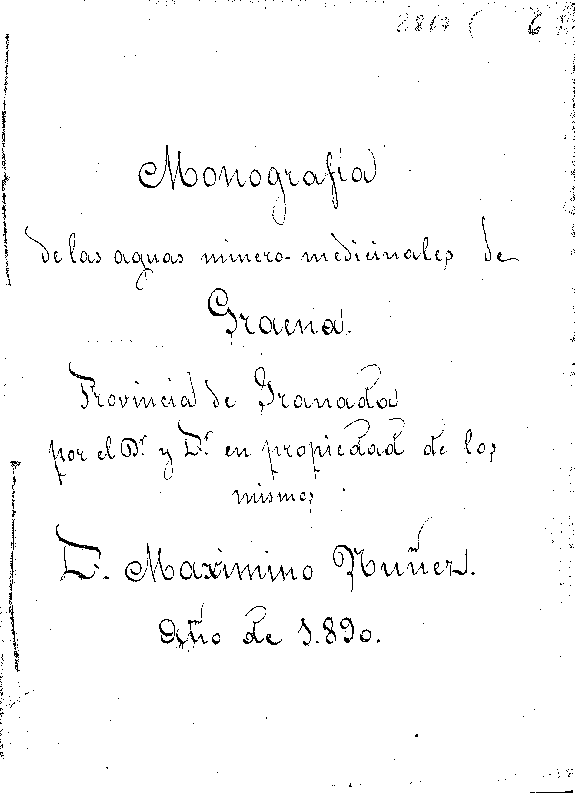 Monografía
de las aguas minero-medicinales de
Graena.
Provincia de Granada
por el Dr. y Dr. en propiedad de los
mismos
D. Maximino Nuñez.
Año de 1.890.